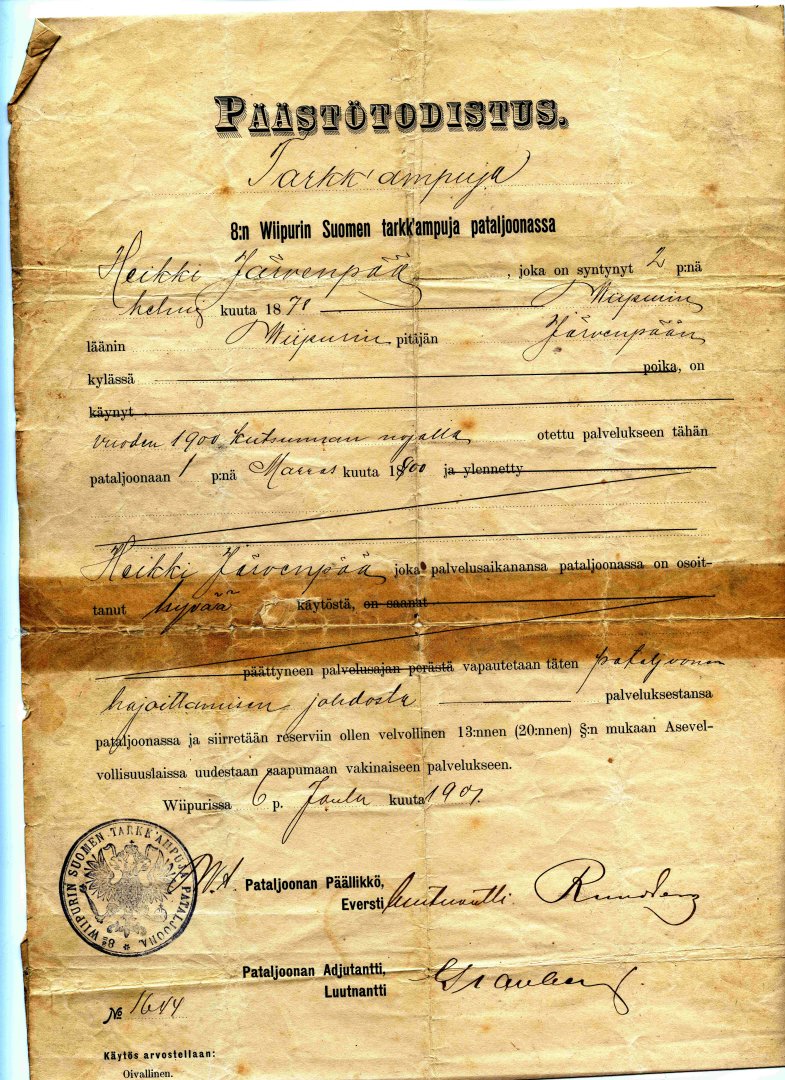 PÄÄSTÖTODISTUS.
Tarkk'ampuja
8:n Wiipurin Suomen tarkk'ampuja pataljoonassa
Heikki Järvenpää, joka on syntynyt 2 p:nä
helmi kuuta 1878 Wiipurin
läänin Wiipurin pitäjän Järvenpään
kylässä poika, on
käynyt
vuoden 1900 kutsunnan nojalla otettu palvelukseen tähän
pataljoonaan 1 p:nä Marras kuuta 1900 ja ylennetty
Heikki Järvenpää joka palvelusaikanansa pataljoonassa on osoit-
tanut hyvää käytöstä, on saanut
päättyneen palvelusajan perästä vapautetaan täten pataljoonan
hajoittamisen johdosta palveluksestansa
pataljoonassa ja siirretään reserviin ollen velvollinen 13:nnen (20:nnen) §:n mukaan Asevel-
vollisuuslaissa uudestaan saapumaan vakinaiseen palvelukseen.
Wiipurissa 6 p. Joulu kuuta 1901.
8s WIIPURIN SUOMEN TARKK'AMPUJA PATALJOONA
Pataljoonan Päällikkö,
Eversti
Pataljoonan Adjutantti,
Luutnantti
№ 1644
Käytös arvostellaan:
Oivallinen.